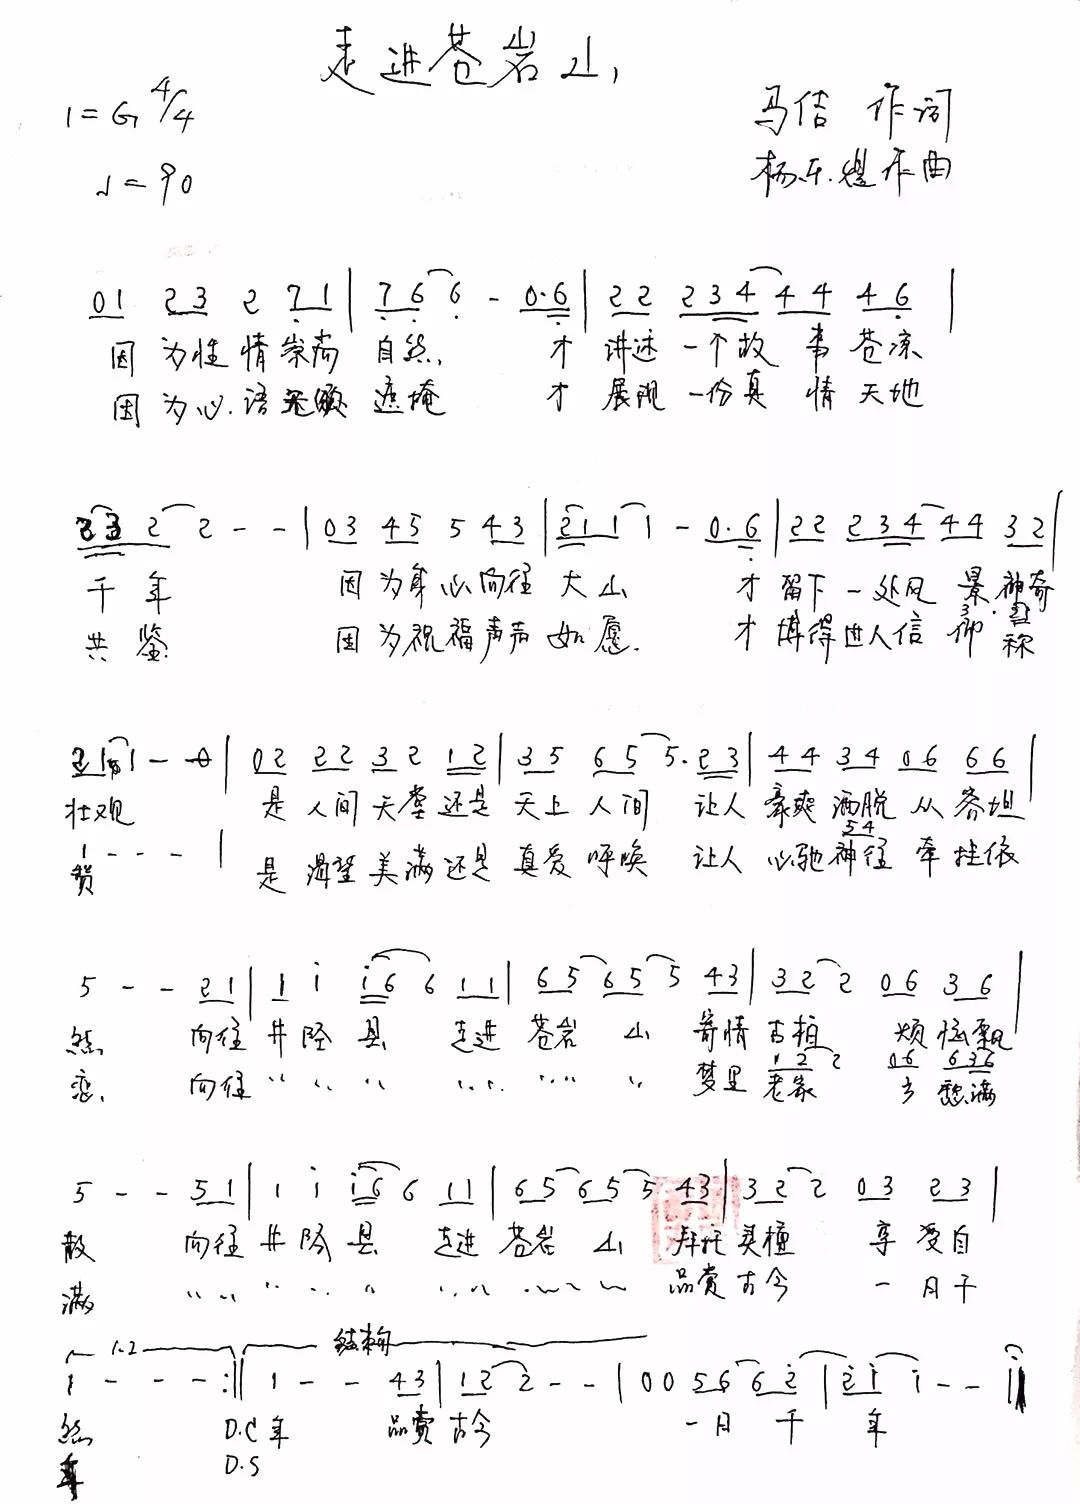 走进苍岩山
1=G 4/4
马佶 作词
♩=90
杨东煜作曲
01 23 2 71 | 7 6 6 - 0·6 | 22 234 44 46 |
因为性情崇尚 自然, 才 讲述一个故事苍凉
因为心语无须遮掩 才 展现一份真情天地
33 2 2 - - | 03 45 5 43 | 21 1 1 - 0·6 | 22 234 44 32 |
千年 因为身心向往大山 才留下一处风景神奇
共鉴 因为祝福声声如愿. 才博得世人信仰称
1 - | 02 22 32 12 | 35 65 5·23 | 44 34 06 66 |
壮观 是人间天堂还是天上人间 让人豪爽洒脱从容坦
54
1 - - - |
赞 是渴望美满还是真爱呼唤 让人心驰神往牵挂依
5 - - 21 | 1 i i6 6 11 | 65 65 5 43 | 32 2 06 36 |
然 向往井陉县 走进苍岩山 寄情古柏 烦恼飘
12 2 06 636
恋, 向往 〃 〃 〃 〃 〃 〃 〃 梦里老家 乡愁满
5 - - 51 | 1 i i6 6 11 | 65 65 5 43 | 32 2 03 23 |
散 向往井陉县 走进苍岩山 拜托美檀 享受自
满 〃 〃 〃 〃 〃 〃 品赏古今 一月千
1.2 结构
1 - - - :‖ 1 - - 43 | 12 2 - - | 00 56 62 | 2i i - - ‖
然 D.C 年 品赏古今 一月千年
年 D.S